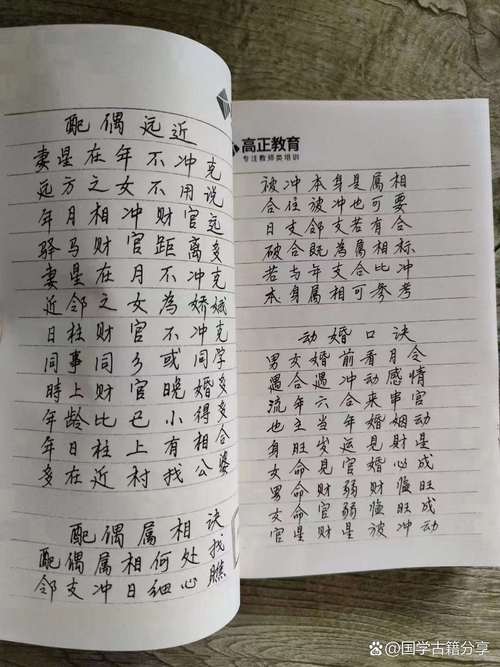 配偶远近
妻星在年不冲克
远方之女不用说
年月相冲财官远
驿马财官距离多
妻星在月不冲克
近邻之女為娇娥
日柱财官不冲克
同事同乡或同学
時上财官晚婚多
年龄比己小得多
年日柱上有相合
多在近村找公婆
配偶属相诀
配偶属相何处找
邻支冲日细心瞧
高正教育
专注教师类培训
被冲本身是属相
合住被冲也可要
日支邻支若有合
破合既為属相标
若与年支合比冲
本身属相可参考
动婚口诀
男女婚前看月令
遇合遇冲动感情
流年六合来串宫
也主当年婚姻动
身旺岁运見财星
女命見官婚心成
男命财弱财临旺
女命官弱临旺成
官星财星被冲动
@国学古籍分享